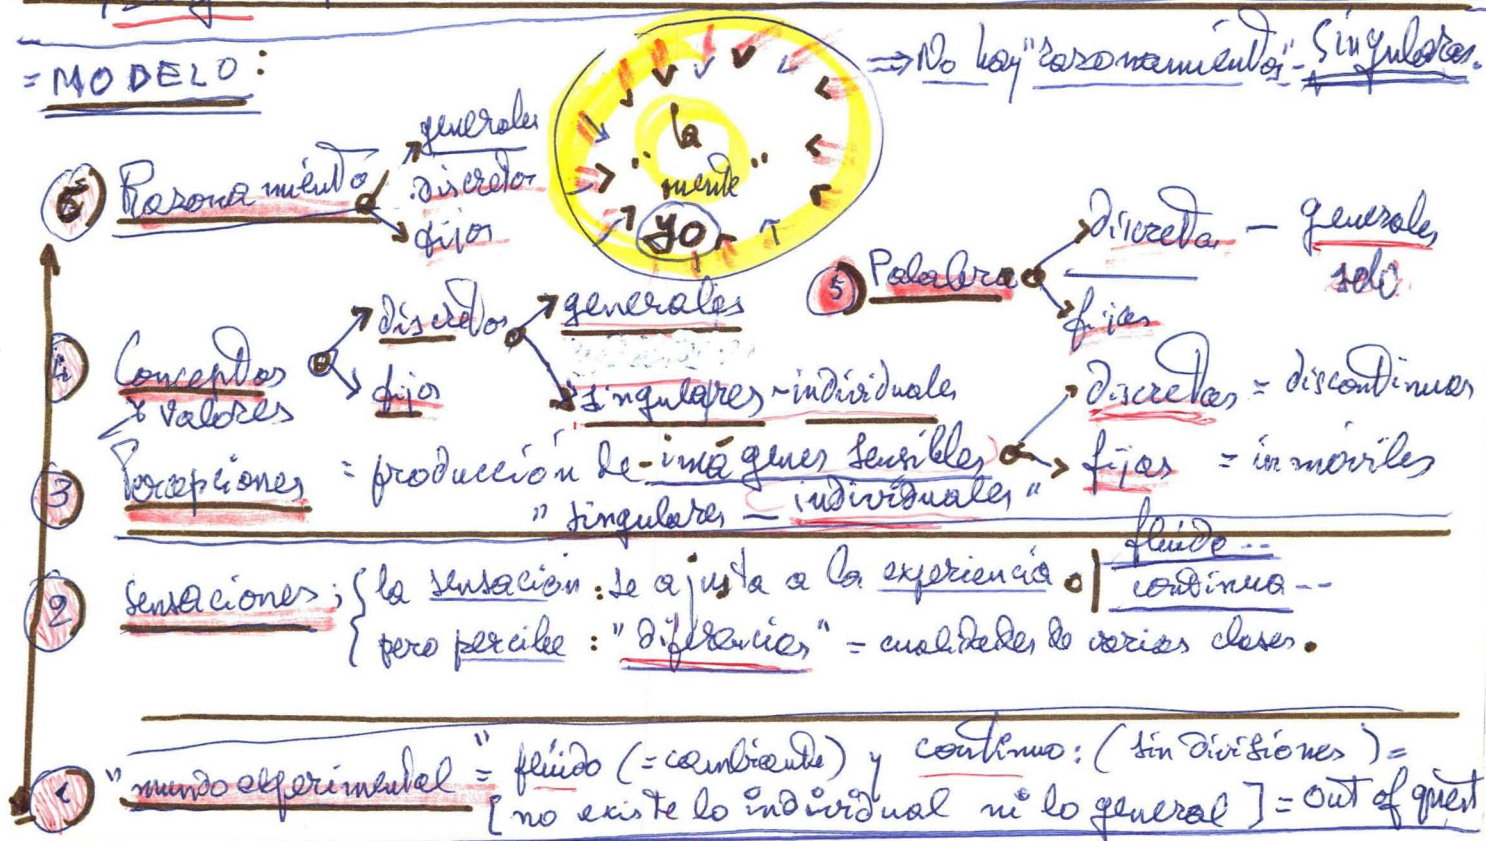 = MODELO:
⇒ No hay "razonamientos" - Singulares.
"la mente"
yo
6 Razonamiento
generales
discretos
fijos
5 Palabra
discretas - generales solo
fijas
4 Conceptos
y valores
discretos
fijos
generales
singulares - individuales
3 Percepciones = producción de - imágenes sensibles
"singulares - individuales"
discretas = discontinuas
fijas = inmóviles
2 Sensaciones; { la sensación: se ajusta a la experiencia
fluido --
continua --
pero percibe: "diferencias" = cualidades de varias clases.
1 "mundo experimental" = fluido (= cambiante) y continuo: (sin divisiones) =
[no existe lo individual ni lo general] = out of quest